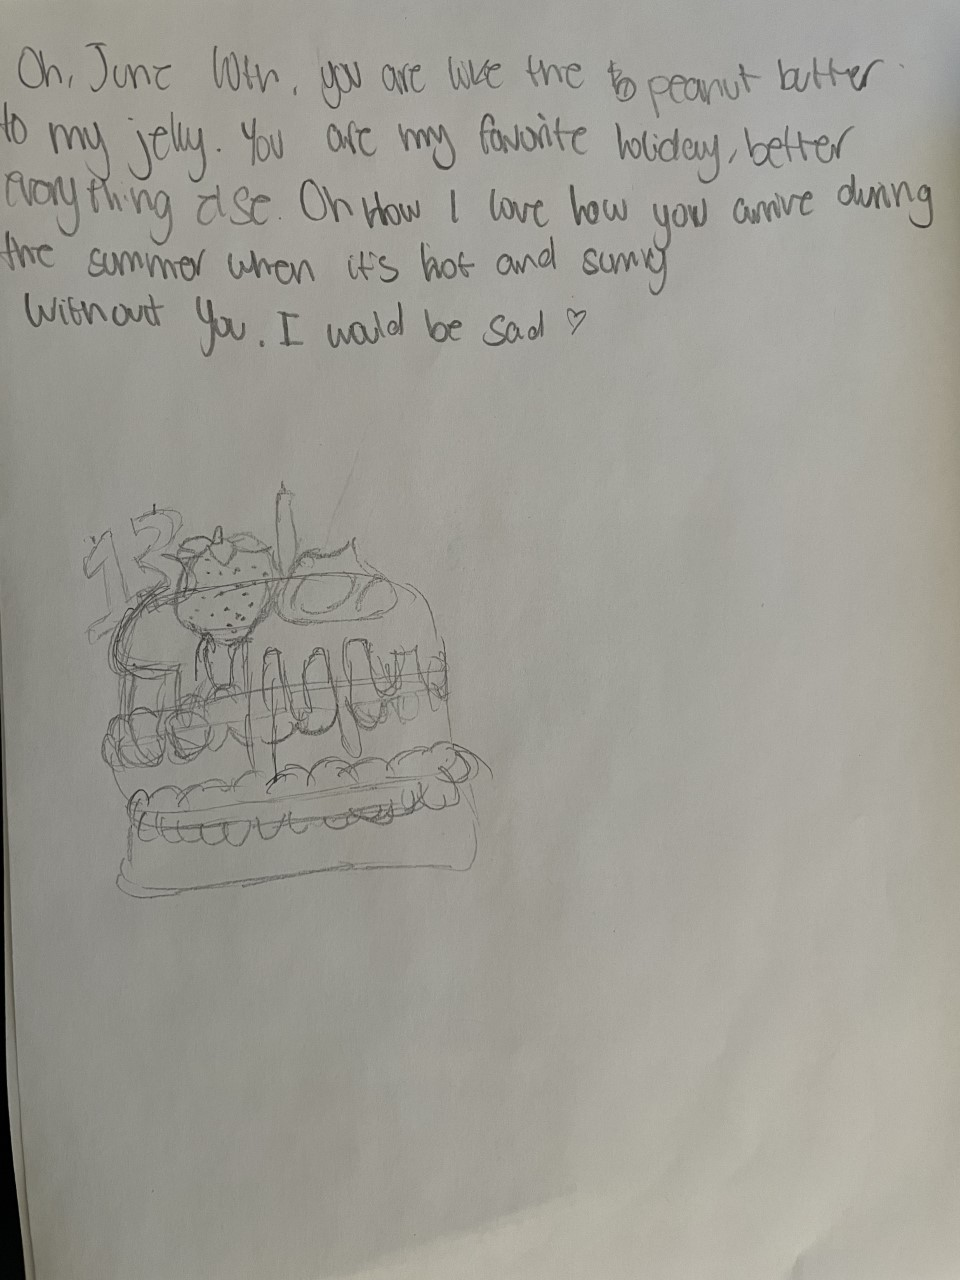 Oh, June 10th, you are like the to peanut butter
to my jelly. You are my favorite holiday, better
everything else. Oh How I love how you arrive during
the summer when it's hot and sunny
Without You. I would be sad ♡
13